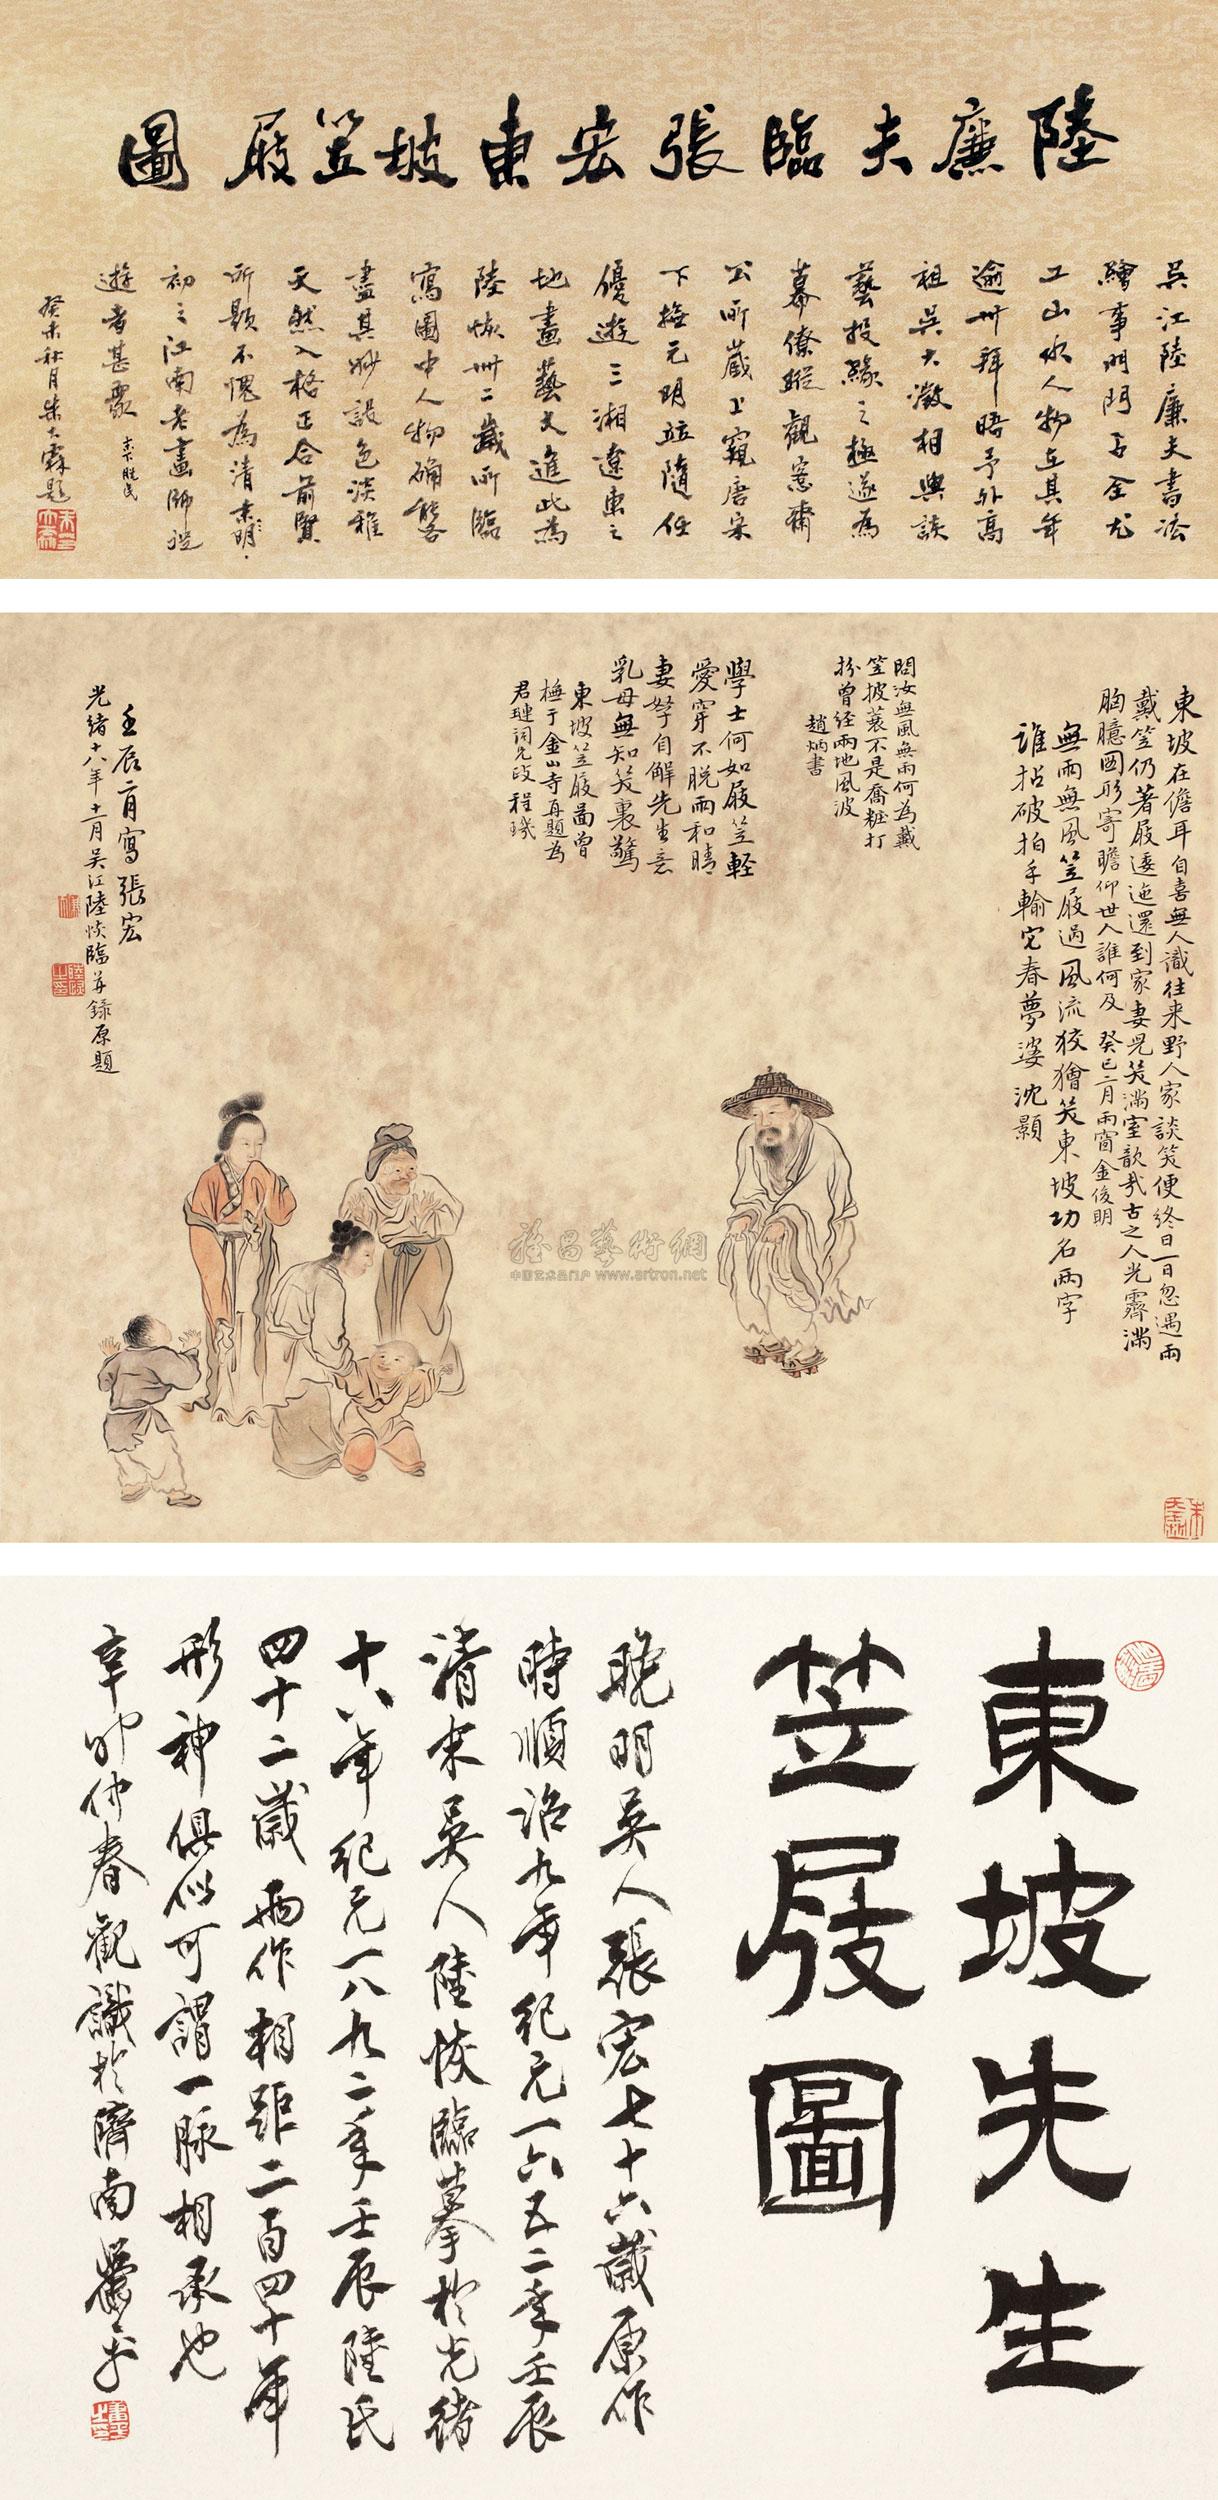 陸廉夫臨張宏東坡笠屐圖
吳江陸廉夫書法
繪事
工山水人物在其年
逾卅拜晤予外高
祖吳大澂相與談
藝投緣之極遂為
幕僚縱觀窓齋
公所藏上窺唐宋
下撫元明竝隨任
優遊三湘遼東之
地畫藝大進此為
陸恢卅二歲所臨
寫圖中人物
盡其妙設色淡雅
天然入格正合前賢
所題不愧為清末明
初之江南老畫師從
遊者甚眾
癸未秋月朱大霖題
東坡在儋耳自喜無人識往来野人家談笑便終日一日忽遇雨
戴笠仍著屐逶迤還到家妻兒笑滿室歆哉古之人光霽滿
胸臆圖形寄瞻仰世人誰何及 癸巳二月雨窗金俊明
無雨無風笠屐過風流狡獪笑東坡功名兩字
誰拈破拍手輸它春夢婆 沈顥
問汝無風無雨何為戴
笠披蓑不是喬粧打
扮曾經兩地風波
趙炳書
學士何如屐笠輕
愛穿不脫雨和晴
妻孥自解先生意
乳母無知笑裏驚
東坡笠屐圖曾
橅于金山寺再題為
君璉詞兄政程
壬辰二月寫張宏
光緒十八年十二月吳江陸恢臨并錄原題
雅昌藝術網
中国艺术品门户 www.artron.net
東坡先生
笠屐圖
晚明吳人張宏七十六歲原作
時順治九年紀元一六五二年壬辰
清末吳人陸恢臨摹於光緒
十八年紀元一八九二年壬辰陸氏
四十二歲兩作相距二百四十年
形神俱似可謂一脉相承也
辛卯仲春觀識於濟南